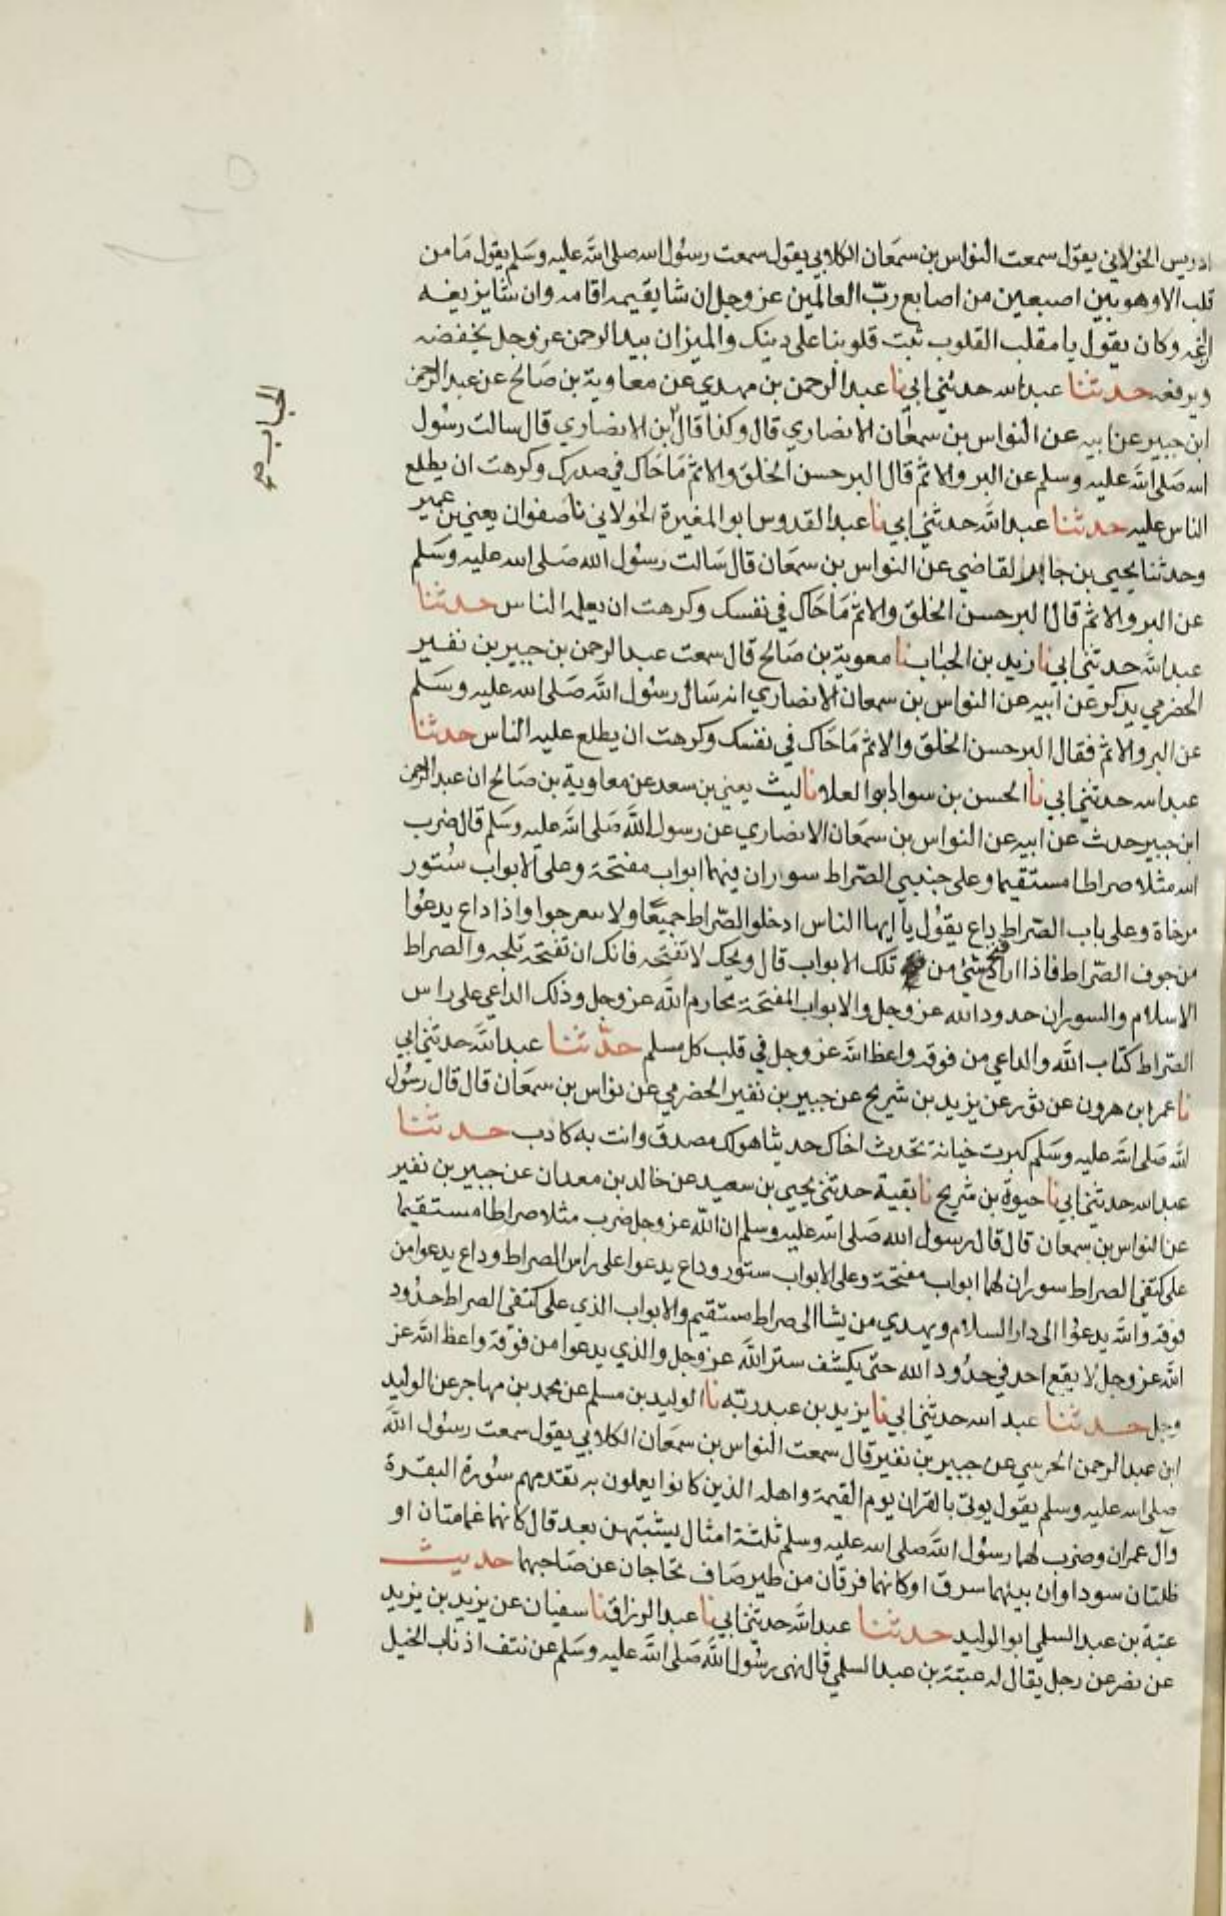 ادريس الخولاني يقول سمعت النواس بن سمعان الكلابي يقول سمعت رسول الله صلى الله عليه وسلم يقول ما من
قلب الا وهو بين اصبعين من اصابع رب العالمين عز وجل ان شا يقيمه اقامه وان شا يزيغه
ازاغه وكان يقول يا مقلب القلوب ثبت قلوبنا على دينك والميزان بيد الرحمن عز وجل يخفضه
ويرفعه حدثنا عبد الله حدثني ابي نا عبد الرحمن بن مهدي عن معاوية بن صالح عن عبد الرحمن
ابن جبير عن ابيه عن النواس بن سمعان الانصاري قال وكذا قال بن الانصاري قال سالت رسول
الله صلى الله عليه وسلم عن البر والاثم قال البر حسن الخلق والاثم ما حاك في صدرك وكرهت ان يطلع
الناس عليه حدثنا عبد الله حدثني ابي نا عبد القدوس ابو المغيرة الخولاني نا صفوان يعني بن عمير
وحدثنا يحيى بن جابر القاضي عن النواس بن سمعان قال سالت رسول الله صلى الله عليه وسلم
عن البر والاثم قال البر حسن الخلق والاثم ما حاك في نفسك وكرهت ان يعلمه الناس حدثنا
عبد الله حدثني ابي نا زيد بن الحباب نا معوية بن صالح قال سمعت عبد الرحمن بن جبير بن نفير
الحضرمي يذكر عن ابيه عن النواس بن سمعان الانصاري انه سال رسول الله صلى الله عليه وسلم
عن البر والاثم فقال البر حسن الخلق والاثم ما حاك في نفسك وكرهت ان يطلع عليه الناس حدثنا
عبد الله حدثني ابي نا الحسن بن سوار ابو العلا نا ليث يعني بن سعد عن معاوية بن صالح ان عبد الرحمن
ابن جبير حدث عن ابيه عن النواس بن سمعان الانصاري عن رسول الله صلى الله عليه وسلم قال ضرب
الله مثلا صراطا مستقيما وعلى جنبي الصراط سوران فيهما ابواب مفتحة وعلى الابواب ستور
مرخاة وعلى باب الصراط داع يقول يا ايها الناس ادخلوا الصراط جميعا ولا تعرجوا واذا داع يدعوا
من جوف الصراط فاذا اراد فتح شئ من تلك الابواب قال ويحك لا تفتحه فانك ان تفتحه تلجه والصراط
الاسلام والسوران حدود الله عز وجل والابواب المفتحة محارم الله عز وجل وذلك الداعي على راس
الصراط كتاب الله والداعي من فوقه واعظ الله عز وجل في قلب كل مسلم حدثنا عبد الله حدثني ابي
نا عمر ابن هرون عن ثور عن يزيد بن شريح عن جبير بن نفير الحضرمي عن نواس بن سمعان قال قال رسول
الله صلى الله عليه وسلم كبرت خيانة تحدث اخاك حديثا هو لك مصدق وانت به كاذب حدثنا
عبد الله حدثني ابي نا حيوة بن شريح نا بقية حدثني يحيى بن سعيد عن خالد بن معدان عن جبير بن نفير
عن النواس بن سمعان قال قال رسول الله صلى الله عليه وسلم ان الله عز وجل ضرب مثلا صراطا مستقيما
على كتفي الصراط سوران لهما ابواب مفتحة وعلى الابواب ستور وداع يدعوا على راس الصراط وداع يدعوا من
فوقه والله يدعوا الى دار السلام ويهدي من يشا الى صراط مستقيم والابواب الذي على كتفي الصراط حدود
الله عز وجل لا يقع احد في حدود الله حتى يكشف ستر الله عز وجل والذي يدعوا من فوقه واعظ الله عز
وجل حدثنا عبد الله حدثني ابي نا يزيد بن عبد ربه نا الوليد بن مسلم عن محمد بن مهاجر عن الوليد
ابن عبد الرحمن الجرسي عن جبير بن نفير قال سمعت النواس بن سمعان الكلابي يقول سمعت رسول الله
صلى الله عليه وسلم يقول يوتى بالقران يوم القيمة واهله الذين كانوا يعملون به تقدمهم سورة البقرة
وآل عمران وضرب لهما رسول الله صلى الله عليه وسلم ثلثة امثال يشبتهن بعد قال كانهما غمامتان او
ظلتان سوداوان بينهما سرق او كانهما فرقان من طير صاف تحاجان عن صاحبهما حديث
عتبة بن عبد السلمي ابو الوليد حدثنا عبد الله حدثني ابي نا عبد الرزاق نا سفيان عن يزيد بن يزيد
عن نصر عن رجل يقال له عبتة بن عبد السلمي قال نهى رسول الله صلى الله عليه وسلم عن نتف اذناب الخيل
الحباب صح